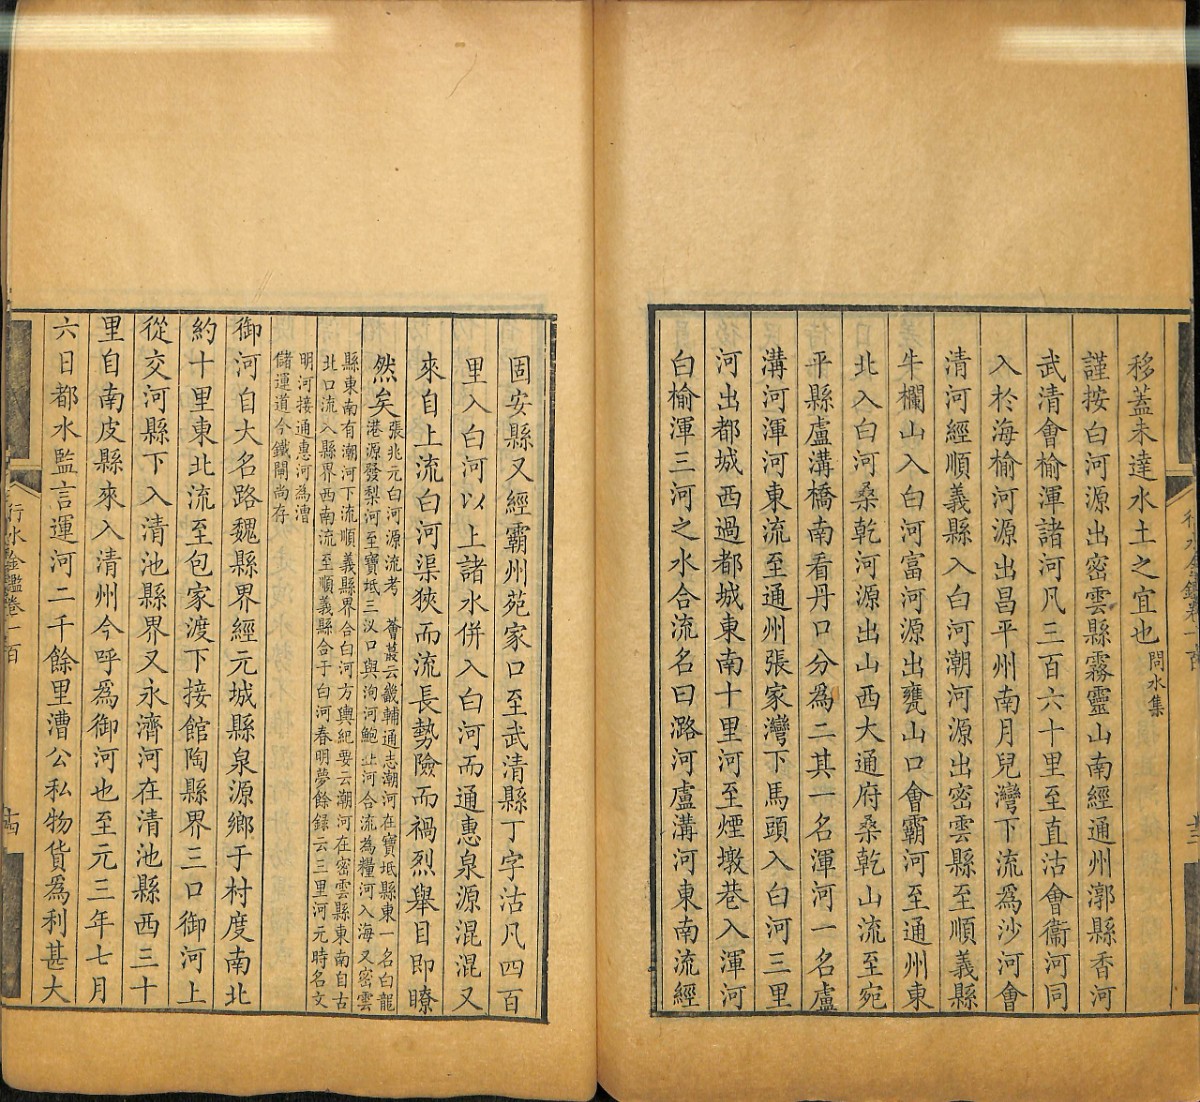 移蓋未達水土之宜也問水集
謹按白河源出密雲縣霧靈山南經通州漷縣香河
武清會榆渾諸河凡三百六十里至直沽會衞河同
入於海榆河源出昌平州南月兒灣下流為沙河會
清河經順義縣入白河潮河源出密雲縣至順義縣
牛欄山入白河富河源出甕山口會霸河至通州東
北入白河桑乾河源出山西大通府桑乾山流至宛
平縣盧溝橋南看丹口分為二其一名渾河一名盧
溝河渾河東流至通州張家灣下馬頭入白河三里
河出都城西過都城東南十里河至煙墩巷入渾河
白榆渾三河之水合流名曰潞河盧溝河東南流經
固安縣又經霸州苑家口至武清縣丁字沽凡四百
里入白河以上諸水併入白河而通惠泉源混混又
來自上流白河渠狹而流長勢險而禍烈舉目即瞭
然矣張兆元白河源流考 薈蕞云畿輔通志潮河在寶坻縣東一名白龍
港源發梨河至寶坻三汊口與泃河鮑丘河合流為糧河入海又密雲
縣東南有潮河下流順義縣界合白河方輿紀要云潮河在密雲縣東南自古
北口流入縣界西南流至順義縣合于白河春明夢餘録云三里河元時名文
明河接通惠河為漕
儲運道今鐵閘尚存
御河自大名路魏縣界經元城縣泉源鄉于村度南北
約十里東北流至包家渡下接館陶縣界三口御河上
從交河縣下入清池縣界又永濟河在清池縣西三十
里自南皮縣來入清州今呼為御河也至元三年七月
六日都水監言運河二千餘里漕公私物貨為利甚大
行水金鑑卷一百
十四